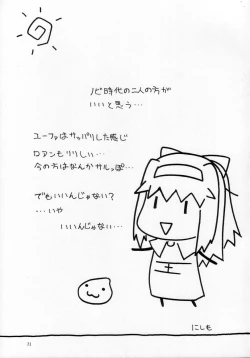 ノビ時代の二人の方が
いいと思う…
ユーファはサッパリした感じ
ロアンもりりしい…
今の方はなんかサルっぽ…
でもいいんじゃない？
…いや
いいんじゃない…
にしも
21